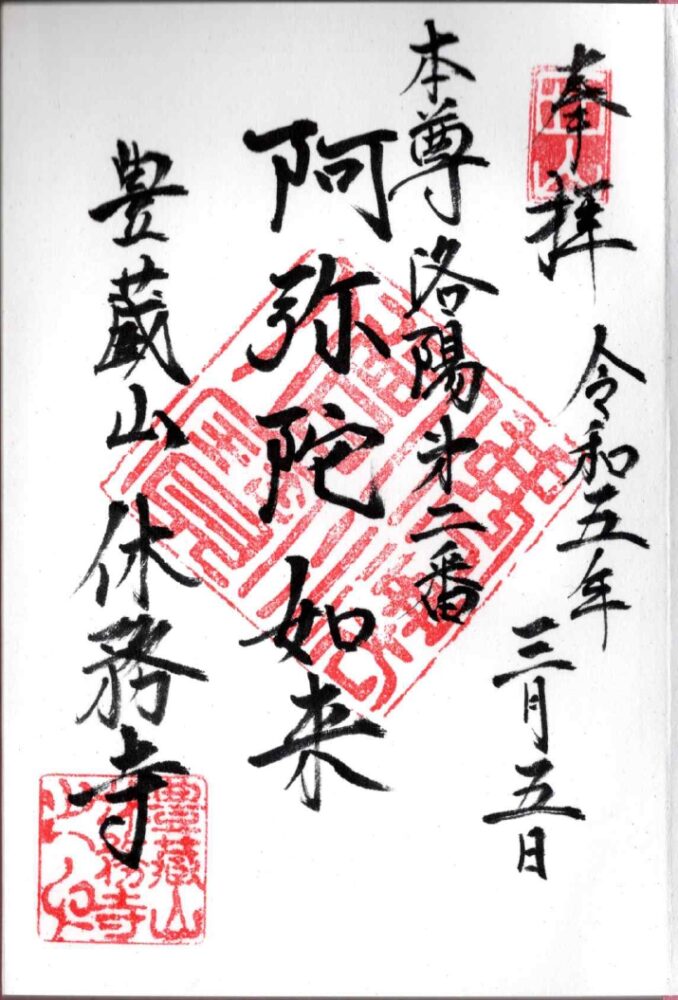 奉拝
令和五年
三月五日
本尊 洛陽第二番
阿弥陀如来
豊蔵山 休務寺
豊蔵山
休務寺
之印